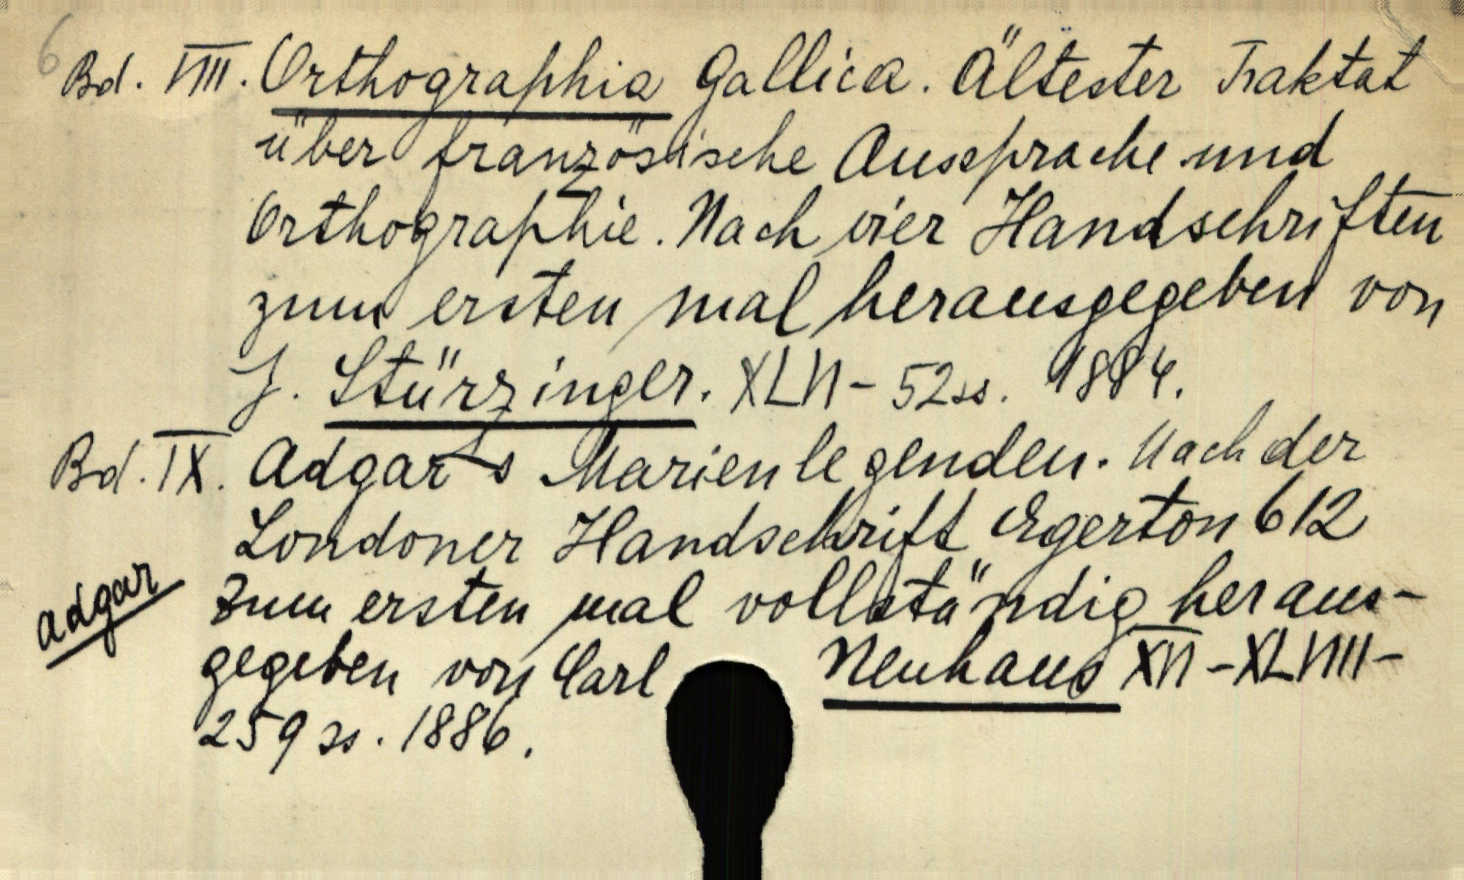 6
Bd. VIII. Orthographia Gallica. Ältester Traktat
über französische Aussprache und
Orthographie. Nach vier Handschriften
zum ersten mal herausgegeben von
J. Stürzinger. XLVI - 52 ss. 1884.
Bd. IX. Adgar's Marienlegenden. Nach der
Londoner Handschrift Egerton 612
adgar
zum ersten mal vollständig heraus-
gegeben von Carl Neuhaus XVI - XLVIII -
259 ss. 1886.